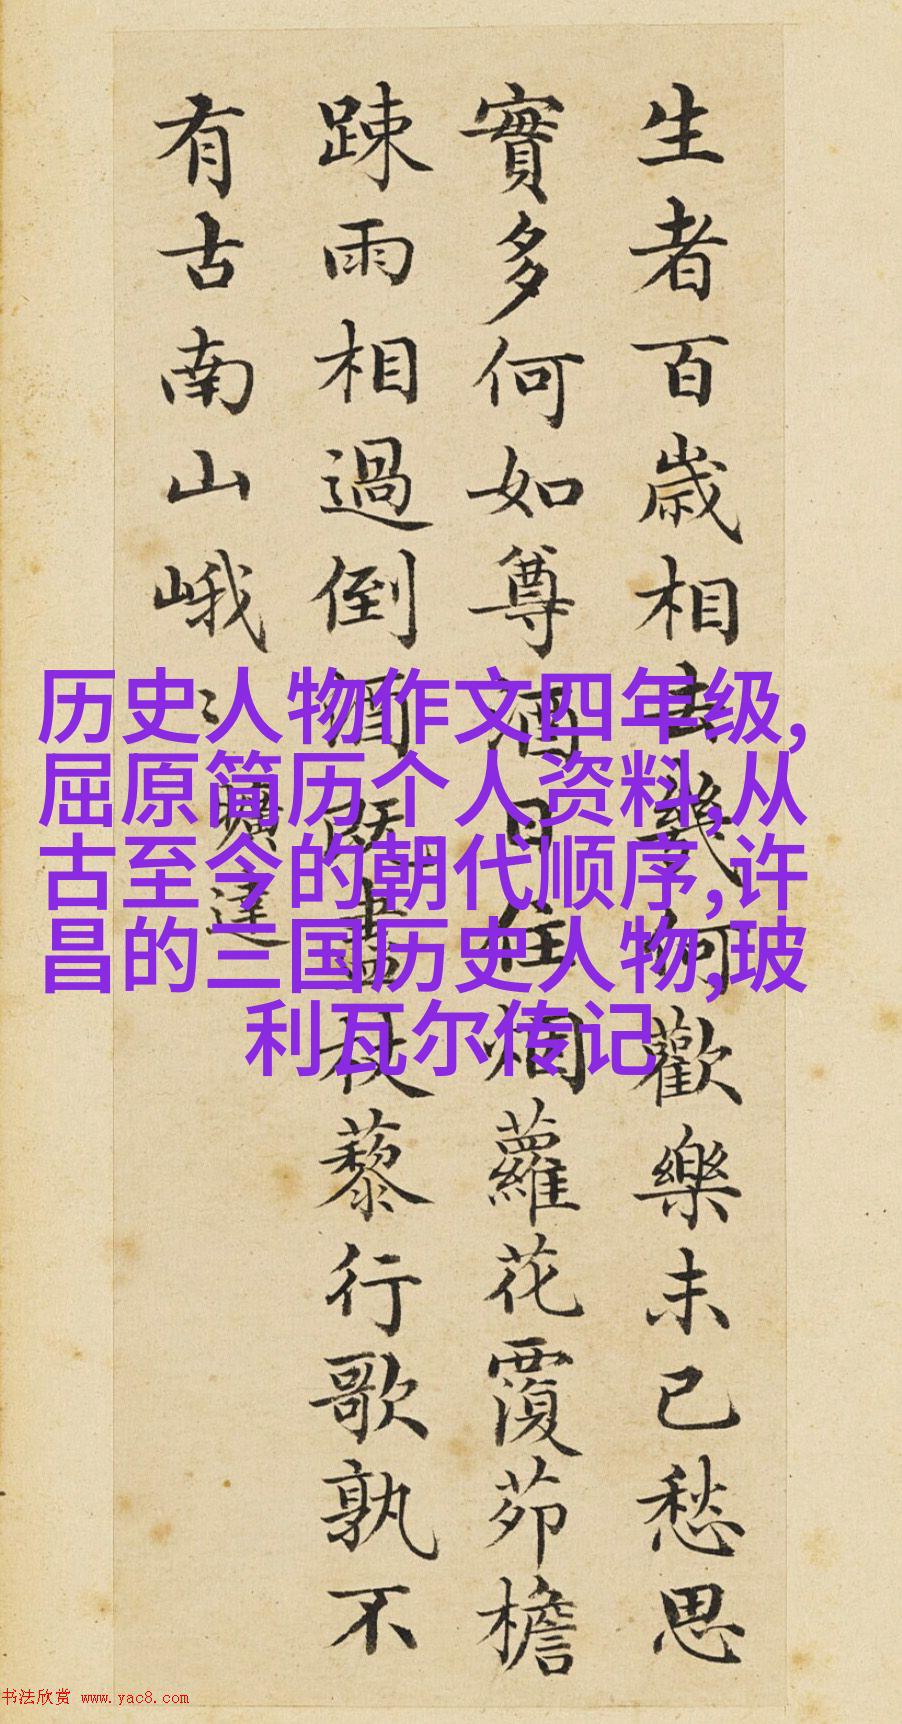 生者百歲相去幾何歡樂未已愁思
實多何如尊酒日往烟蘿花覆茆檐
踈雨相過倒酒既盡杖藜行歌孰不
有古南山峨〻
曠達
历史人物作文四年级,
屈原简历个人资料,从
古至今的朝代顺序,许
昌的三国历史人物,玻
利瓦尔传记
书法欣赏 www.yac8.com